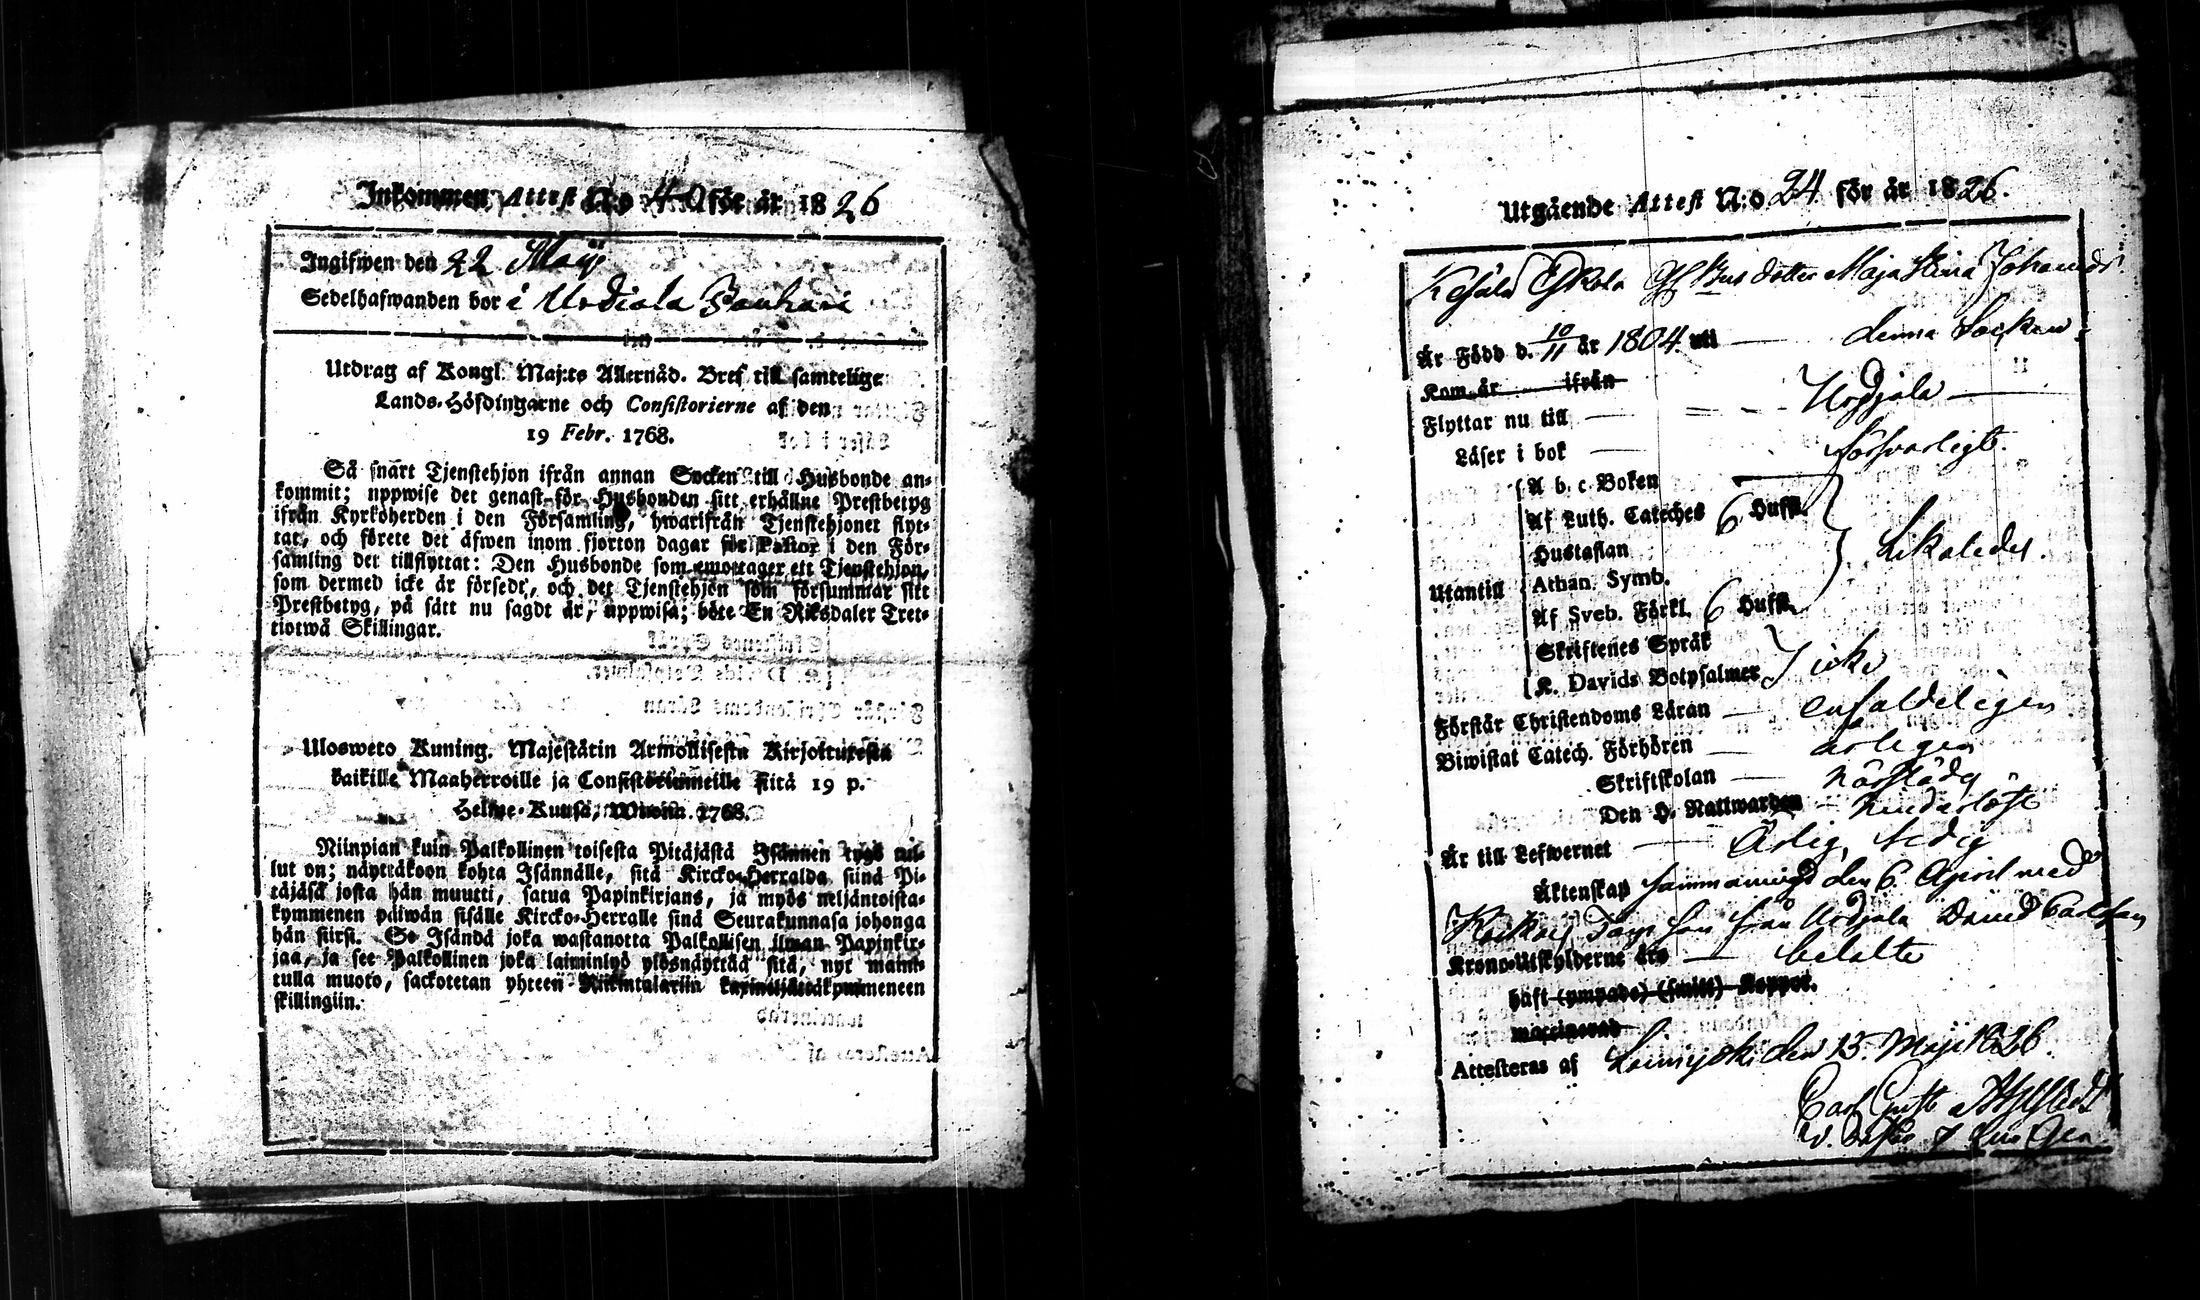 Inkommen Attest N:o 40 för år 1826
Ingifwen den 22 Maji
Sedelhafwanden bor i Urdiala
Utdrag af Kongl. Maj:ts Allernåd. Bref till samtelige
Lands-Höfdingarne och Consistorierne af den
19 Febr. 1768.
Så snart Tjenstehjon ifrån annan Socken till Husbonde an-
kommit; uppwise det genast för Husbonden sitt erhållne Prestbetyg
ifrån Kyrkoherden i den Församling, hwarifrån Tjenstehjonet flyt-
tat, och förete det äfwen inom fjorton dagar för Pastor i den För-
samling der tillflyttat: Den Husbonde som emottager ett Tjenstehjon,
som dermed icke är försedt, och det Tjenstehjon som försummar sitt
Prestbetyg, på sätt nu sagdt är, uppwisa; böte En Riksdaler Tret-
tiotwå Skillingar.
Ulosweto Kuning. Majestätin Armollisesta Kirjoituxesta
kaikille Maaherroille ja Consistoriumeille sitä 19 p.
Helme-Kuusa, Wuona 1768.
Niinpian kuin Palkollinen toisesta Pitäjästä Isännen tygö tul-
lut on; näyttäkoon kohta Isännälle, sitä Kircko-Herralda siinä Pi-
täjäsä josta hän muutti, saatua Papinkirjans, ja myös neljäntoista-
kymmenen päiwän sisälle Kircko-Herralle sinä Seurakunnasa johonga
hän siirsi. Se Isändä joka wastanotta Palkollisen ilman Papinkir-
jaa, ja see Palkollinen joka laiminlyö ylösnäyttää sitä, nyt maini-
tulla muoto, sackotetan yhteen Rikintalariin kaxineljättäkymmeneen
skillingiin.
Utgående Attest N:o 24 för år 1826.
Eskola dotter Maja Stina Johansdr
Är Född d. 10/11 år 1804 uti denna Socken
Kom år ifrån
Flyttar nu till Urdjala
Läser i bok försvarligt.
A b c Boken
Af Luth. Cateches 6 Hufst.
Hustaflan
Utantill
Athan. Symb.
Likaledes.
Af Sveb. Förkl. 6 Hufst.
Skriftenes Språk
K. Davids Botpsalmer icke
Förstår Christendoms Läran enfaldeligen
Biwistat Catech. Förhören årligen
Skriftskolan
Den H. Nattwarden hinderlöst
Är till Lefwernet Ärlig, ledig
Äktenskap den 6 April med
son från Urdjala David Carlsson
Krono-Utskylderne äro betalte
haft (ympade) (smitt) Koppor.
vaccinerad
Attesteras af den 13. Maji 1826.
Carl Gust.